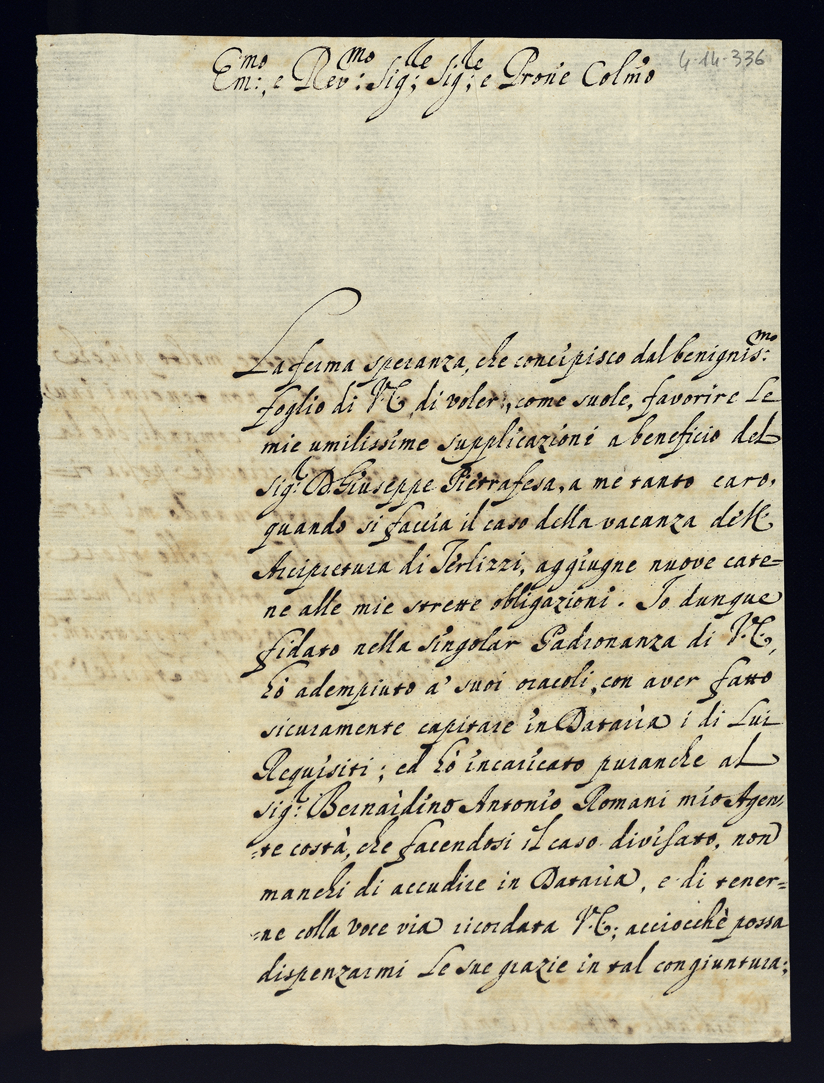 Em:mo, e Rev:mo Sig:re Sig:re e Prone Colmo
4-14-336
La ferma speranza, che concipisco dal benignis:mo
foglio di V.E. di voler, come suole, favorire le
mie umilissime supplicazioni a beneficio del
Sig:r D. Giuseppe Pietrafesa, a me tanto caro,
quando si faccia il caso della vacanza dell'
Arcipretura di Terlizzi, aggiugne nuove cate=
ne alle mie strette obligazioni. Io dunque
fidato nella singolar Padronanza di V.E.,
hò adempiuto a' suoi oracoli, con aver fatto
sicuramente capitare in Dataria i di Lui
Requisiti; ed hò incaricato puranche al
Sig:r Bernardino Antonio Romani mio Agen=
=te costà, che facendosi il caso divisato, non
manchi di accudire in Dataria, e di tener=
=ne colla voce via ricordata V.E.; acciocchè possa
dispenzarmi le sue grazie in tal congiuntura;